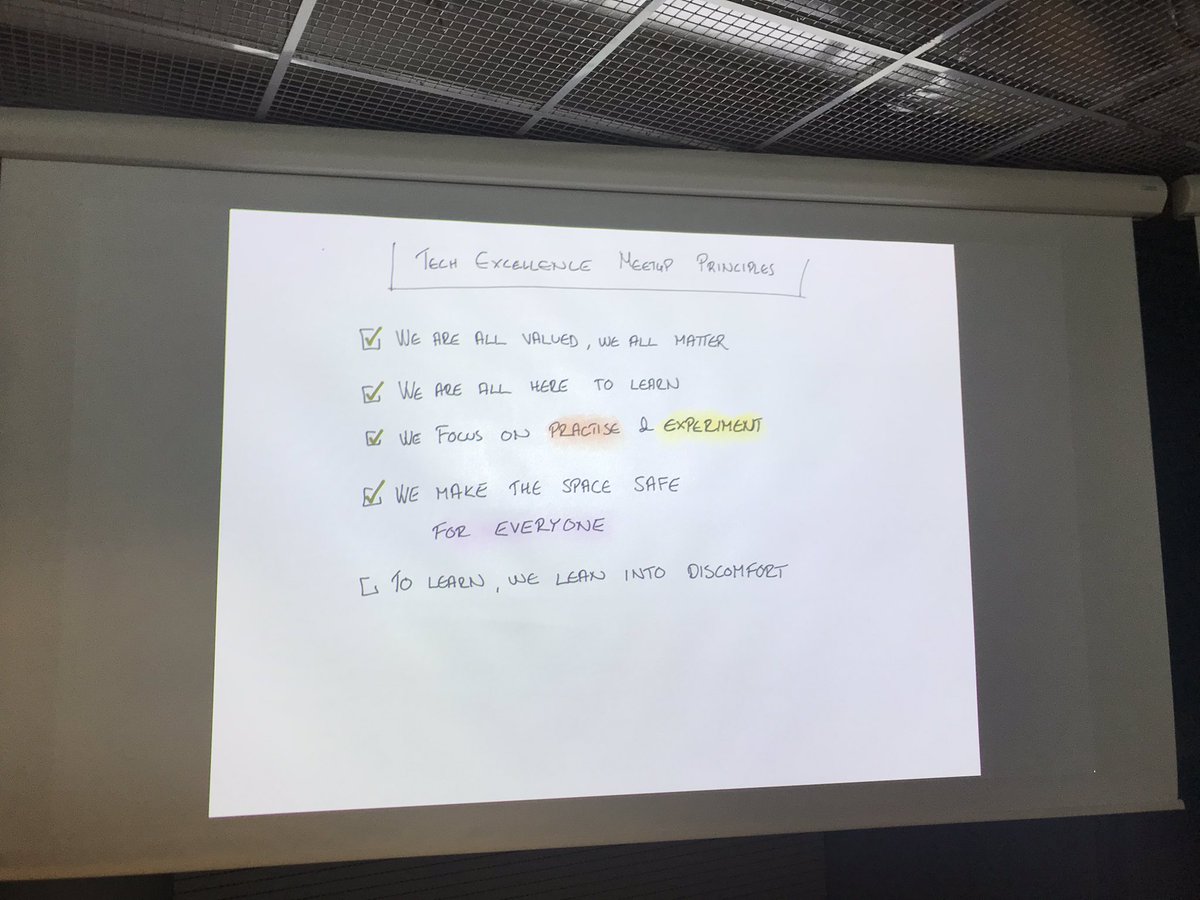 TECH EXCELLENCE MEETUP PRINCIPLES
WE ARE ALL VALUED, WE ALL MATTER
WE ARE ALL HERE TO LEARN
WE FOCUS ON PRACTISE & EXPERIMENT
WE MAKE THE SPACE SAFE
FOR EVERYONE
TO LEARN, WE LEAN INTO DISCOMFORT